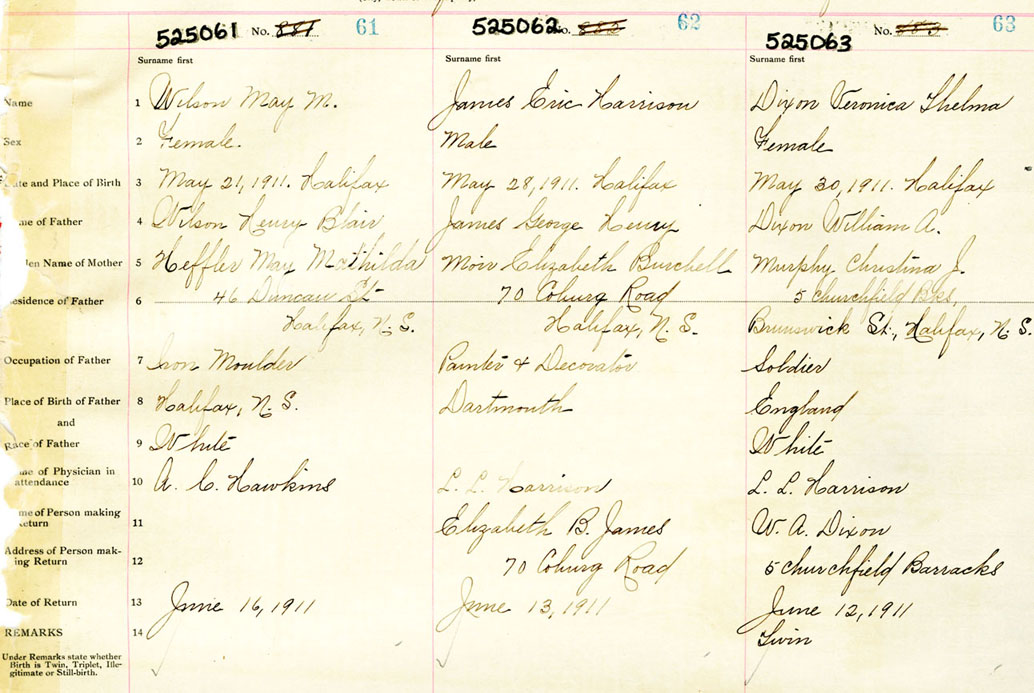 525061 No. 881 61 525062 No. 882 62 525063 No. 883 63
Surname first Surname first Surname first
Name 1 Wilson May M. James Eric Harrison Dixon Veronica Thelma
Sex 2 Female. Male Female
ate and Place of Birth 3 May 21, 1911. Halifax May 28, 1911. Halifax May 30, 1911. Halifax
me of Father 4 Wilson Henry Blair James George Henry Dixon William A.
den Name of Mother 5 Heffler May Mathilda Moir Elizabeth Burchell Murphy Christina J.
esidence of Father 6 46 Duncan St 70 Coburg Road 5 Churchfield Bks,
Halifax, N. S. Halifax, N. S. Brunswick St., Halifax, N. S.
Occupation of Father 7 Iron Moulder Painter & Decorator Soldier
Place of Birth of Father 8 Halifax, N. S. Dartmouth England
and
Race of Father 9 White White
me of Physician in
attendance 10 A. C. Hawkins L. L. Harrison L. L. Harrison
me of Person making
eturn 11 Elizabeth B. James W. A. Dixon
Address of Person mak-
ing Return 12 70 Coburg Road 5 Churchfield Barracks
Date of Return 13 June 16, 1911 June 13, 1911 June 12, 1911
REMARKS 14 Twin
Under Remarks state whether
Birth is Twin, Triplet, Ille-
gitimate or Still-birth.